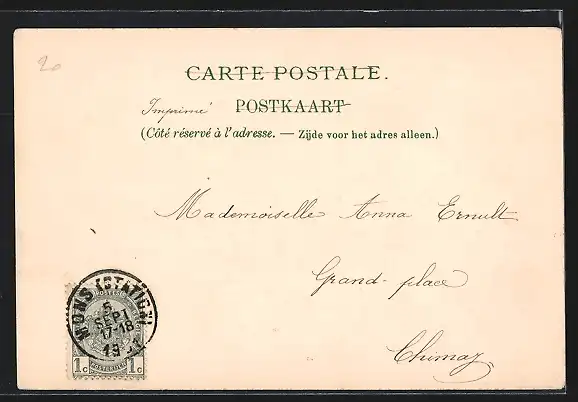 20
CARTE POSTALE.
Imprimé POSTKAART
(Côté réservé à l'adresse. — Zijde voor het adres alleen.)
Mademoiselle Anna Ernult
Grand-place
Chimay
MONS (STATION)
5
SEPT
17-18
1C 1C